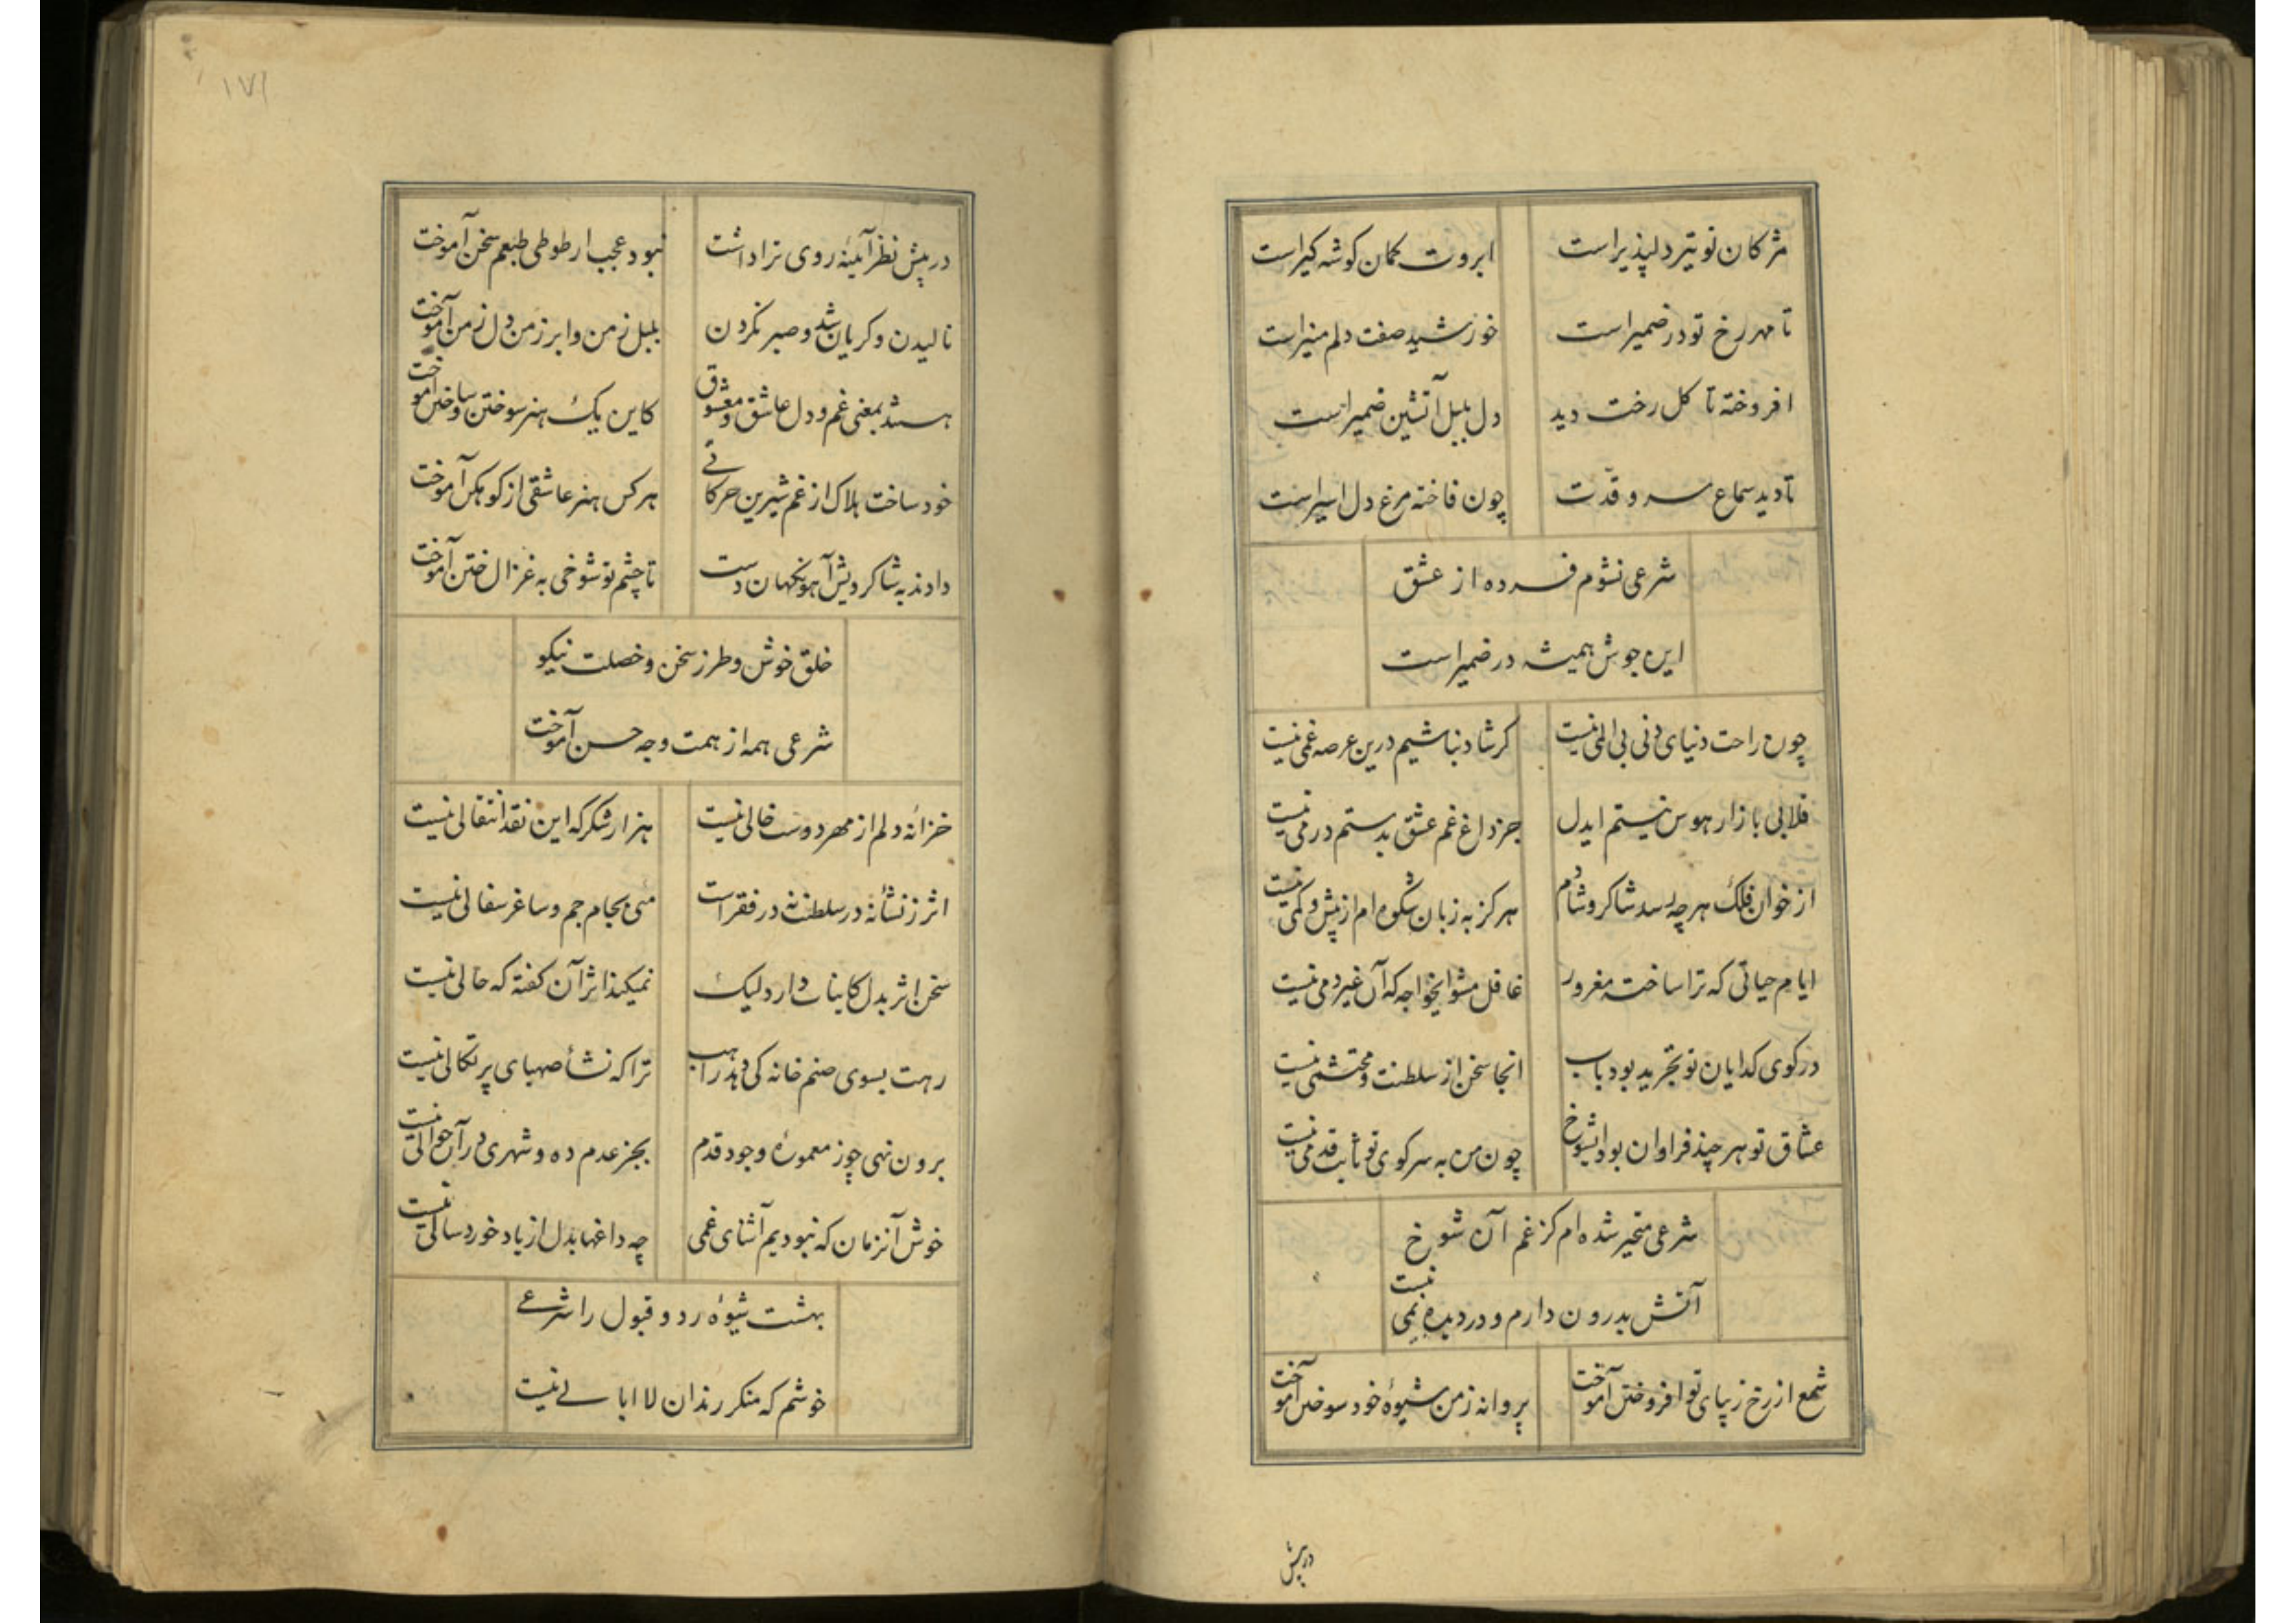 مژکان تو تیر دلپذیر است ابروت کمان کوشه کیر است
تا مهر رخ تو در ضمیر است خورشید صفت دلم منیر است
افروخته تا کل رخت دید دل بلبل آتشین ضمیر است
تا دید سماع سرو قدت چون فاخته مرغ دل اسیر است
شرعی نشوم فسرده از عشق
این جوش همیشه در ضمیر است
چون راحت دنیای دنی بی المی نیست کر شاد نباشیم درین عرصه غمی نیست
قلابی بازار هوس نیستم ایدل جز داغ غم عشق بدستم درمی نیست
از خوان فلک هر چه رسد شاکر و شادم هرکز به زبان شکوه ام از بیش و کمی نیست
ایام حیاتی که ترا ساخت مغرور غافل مشو ایخواجه که آن غیر دمی نیست
در کوی کدایان تو تجرید بود باب انجا سخن از سلطنت و محتشمی نیست
عشاق تو هر چند فراوان بود ایشوخ چون من به سر کوی تو ثابت قدمی نیست
شرعی متحیر شده ام کز غم آن شوخ
آتش بدرون دارم و در دیده نمی نیست
شمع از رخ زیبای تو افروختن آموخت پروانه ز من شیوهٔ خود سوختن آموخت
در پیش
۱۷۱
در پیش نظر آینهٔ روی ترا داشت نبود عجب ار طوطی طبعم سخن آموخت
نالیدن و کریان شد و صبر نکردن بلبل ز من و ابر ز من دل ز من آموخت
هستند بمعنی غم و دل عاشق و معشوق کاین یک هنر سوختن و ساختن آموخت
خود ساخت هلاک از غم شیرین حرکاتی هر کس هنر عاشقی از کوهکن آموخت
دادند به شاکردیش آهو نکهان دست تا چشم تو شوخی به غزال ختن آموخت
خلق خوش و طرز سخن و خصلت نیکو
شرعی همه از همت وجه حسن آموخت
خزانه دلم از مهر دوست خالی نیست هزار شکر که این نقد انتقالی نیست
اثر ز نشانه در سلطنت نه در فقر است مئی بجام جم و ساغر سفالی نیست
سخن اثر بدل کاینات دارد لیک نمیکند اثر آن کفته که حالی نیست
رهت بسوی صنم خانه کی دهد راهب ترا که نشأ صهبای پرتکالی نیست
برون نهی چو ز معمورهٔ وجود قدم بجز عدم ده و شهری در آن حوالی نیست
خوش آنزمان که نبودیم آشنای غمی چه داغها بدل از یاد خوردسالی نیست
بهشت شیوهٔ رد و قبول را شرعی
خوشم که منکر رندان لاابالی نیست